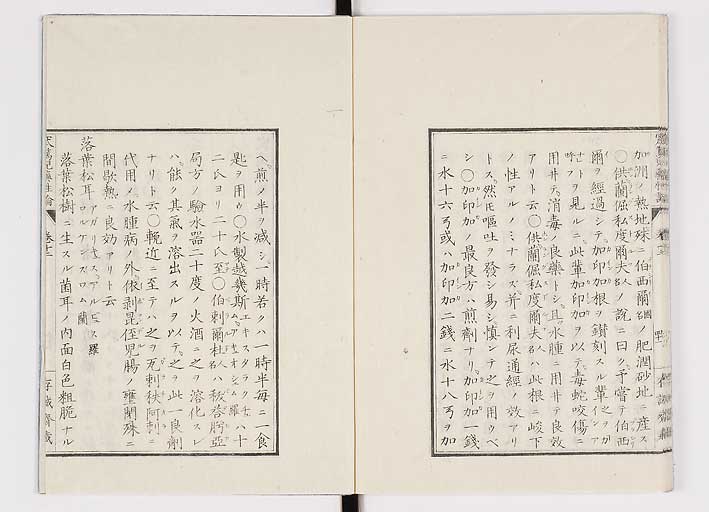 加洲ノ熱地殊ニ伯西爾國ノ肥潤砂地ニ産ス
〇供蘭倔私度爾夫人ノ說ニ曰ク予嘗テ伯西
爾ヲ經過シテ加印加根ヲ鑽刻スル輩
ヲ見ルニ此輩加印加ヲ以テ毒蛇咬傷ニ
用井テ消毒ノ良藥トシ且水腫ニ用井テ良效
アリト云〇供蘭倔私度爾夫人ハ此根ニ峻下
ノ性アルノミナラズ并ニ利尿通經ノ效アリ
トス然圧嘔吐ヲ發シ易シ慎シテ之ヲ用ウベ
シ〇加印加ノ最良方ハ煎劑ナリ加印加一錢
ニ水十六ヲ或ハ加印加二錢ニ水十八ヲヲ加
ヘ煎ノ半ヲ減シ一時若クハ一時半每ニ一食
匙ヲ用ウ〇水製越幾斯 エキスタラクチュム 羅 ハ十
二氏ヨリ二十氏至〇伯剌爾杜人ハ
局方ノ驗水器二十度ノ火酒ニ之ヲ溶化スレ
ハ能ク其氣ヲ溶出スルヲ以テ之ヲ此一良劑
ナリト云〇輓近ニ至テハ之ヲ
代用ノ水腫病ノ外依剥昆侄兒腸ノ壅閉殊ニ
間歇熱ニ良効アリト云
落葉松耳 アガリキュス アルビュス 羅 ロルケンスワム 蘭
落葉松樹ニ生スル菌耳ノ内面白色粗脆ナル
卷十三